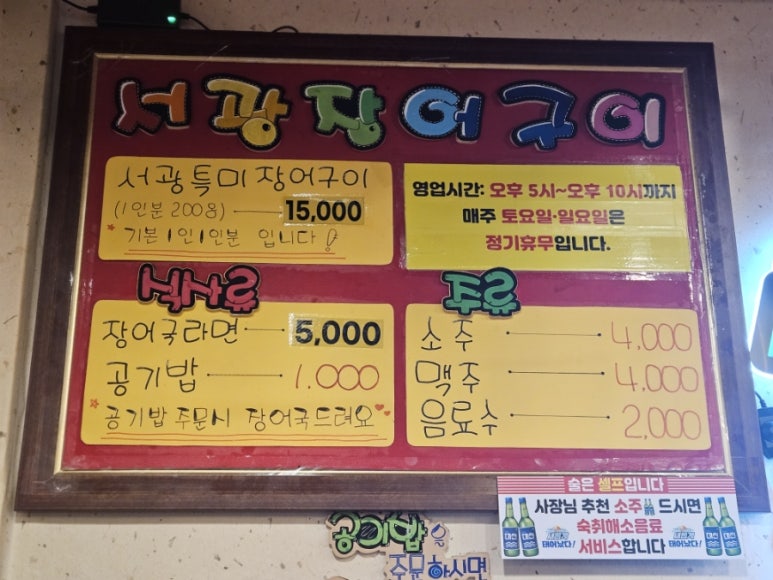 서광장어구이
서광특미 장어구이
(1인분 200g) 15,000
* 기본 1인 1인분 입니다!
영업시간: 오후 5시~오후 10시까지
매주 토요일·일요일은
정기휴무입니다.
식사류
장어국라면 5,000
공기밥 1.000
* 공기밥 주문시 장어국드려요
주류
소주 4,000
맥주 4,000
음료수 2,000
술은 셀프입니다
사장님 추천 소주 드시면
숙취해소음료
서비스합니다
대선
대선
대선
대선
태어났다!
태어났다!
공기밥을
주문하시면